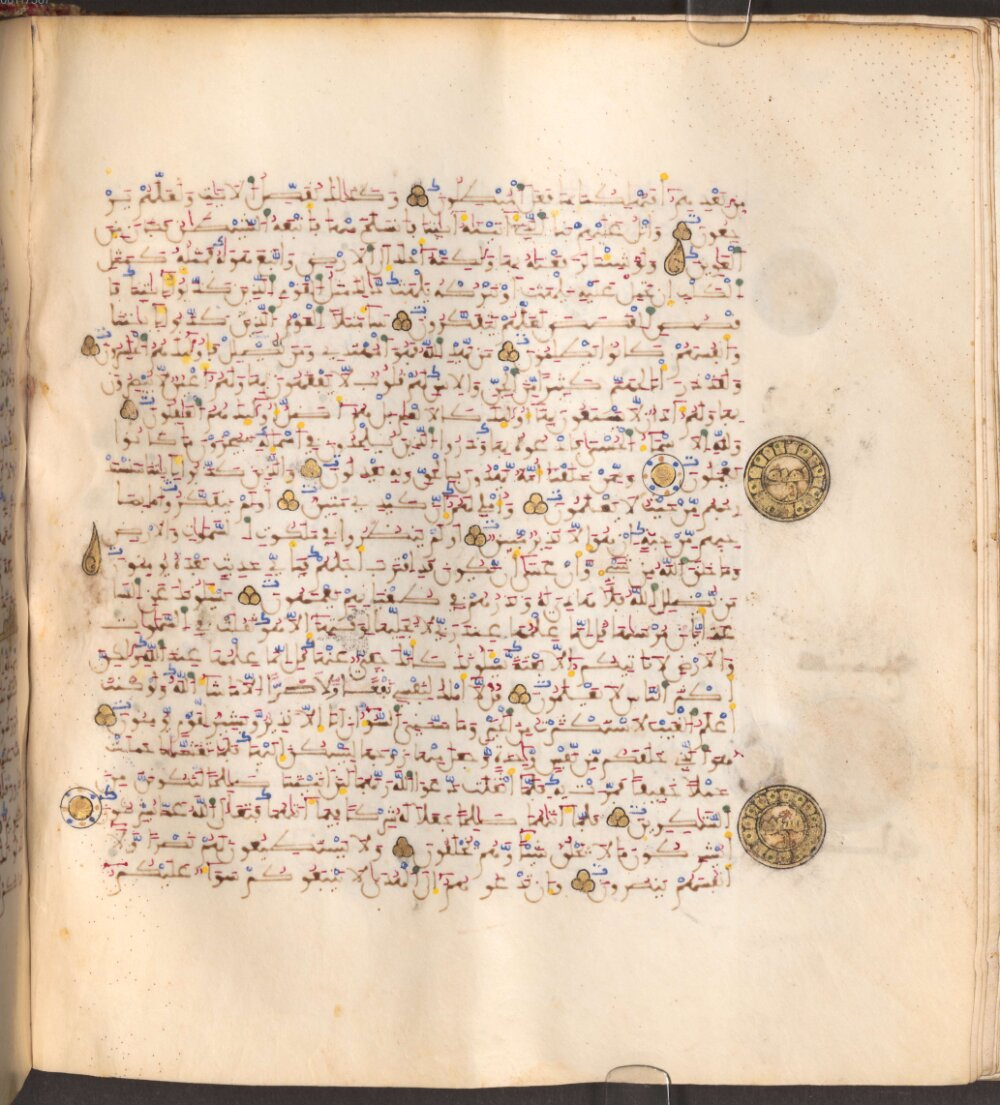 من بعدهم أفتهلكنا بما فعل المبطلون وكذلك نفصل الآيت ولعلهم ير
جعون واتل عليهم نبأ الذي آتينه آيتنا فانسلخ منها فأتبعه الشيطن فكان من
الغاوين ولو شئنا لرفعنه بها ولكنه أخلد إلى الأرض واتبع هواه فمثله كمثل
الكلب إن تحمل عليه يلهث أو تتركه يلهث ذلك مثل القوم الذين كذبوا بآيتنا فا
قصص القصص لعلهم يتفكرون ساء مثلا القوم الذين كذبوا بآيتنا
وأنفسهم كانوا يظلمون من يهد الله فهو المهتدي ومن يضلل فأولئك هم الخسرون
ولقد ذرأنا لجهنم كثيرا من الجن والإنس لهم قلوب لا يفقهون بها ولهم أعين لا يبصرون
بها ولهم آذان لا يسمعون بها أولئك كالأنعم بل هم أضل أولئك هم الغفلون
ولله الأسماء الحسنى فادعوه بها وذروا الذين يلحدون في أسمئه سيجزون ما كانوا
يعملون وممن خلقنا أمة يهدون بالحق وبه يعدلون والذين كذبوا بآيتنا سنستد
رجهم من حيث لا يعلمون وأملي لهم إن كيدي متين أولم يتفكروا ما بصا
حبهم من جنة إن هو إلا نذير مبين أولم ينظروا في ملكوت السموت والأرض
وما خلق الله من شيء وأن عسى أن يكون قد اقترب أجلهم فبأي حديث بعده يؤمنون
من يضلل الله فلا هادي له ونذرهم في طغينهم يعمهون يسئلونك عن السا
عة أيان مرسها قل إنما علمها عند ربي لا يجليها لوقتها إلا هو ثقلت في السموت
والأرض لا تأتيكم إلا بغتة يسئلونك كأنك حفي عنها قل إنما علمها عند الله ولكن
أكثر الناس لا يعلمون قل لا أملك لنفسي نفعا ولا ضرا إلا ما شاء الله ولو كنت
أعلم الغيب لاستكثرت من الخير وما مسني السوء إن أنا إلا نذير وبشير لقوم يؤمنون
هو الذي خلقكم من نفس وحدة وجعل منها زوجها ليسكن إليها فلما تغشها حملت
حملا خفيفا فمرت به فلما أثقلت دعوا الله ربهما لئن آتيتنا صلحا لنكونن من
الشكرين فلما آتهما صلحا جعلا له شركا فيما آتهما فتعلى الله عما يشركون أ
يشركون ما لا يخلق شيئا وهم يخلقون ولا يستطيعون لهم نصرا ولا
أنفسهم ينصرون وإن تدعوهم إلى الهدى لا يتبعوكم سواء عليكم